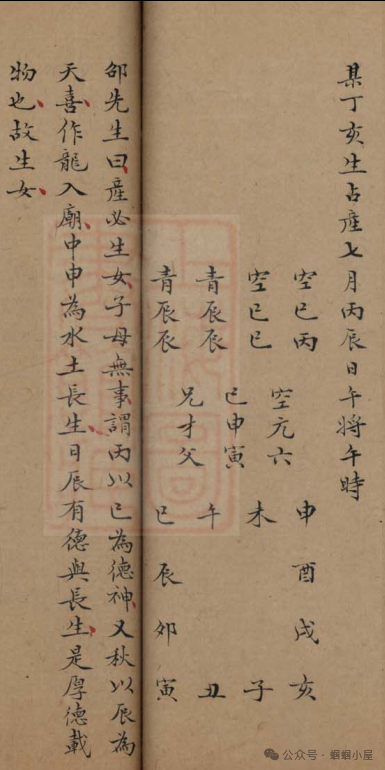 某丁亥生占產七月丙辰日午將午時
空巳丙
空巳巳
青辰辰
青辰辰
空元六
巳申寅
兄才父
申酉戌亥
未子
午丑
巳辰卯寅
邵先生曰產必生女子母無事謂丙以巳為德神又秋以辰為
天喜作龍入廟中申為水土長生日辰有德與長生是厚德載
物也故生女
公众号·蝈蝈小屋